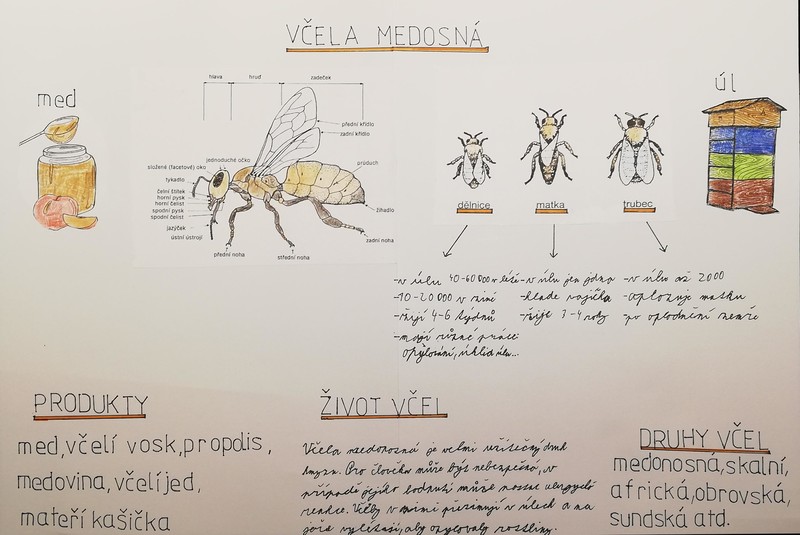 VČELA MEDOSNÁ
med
úl
hlava hruď zadeček
přední křídlo
zadní křídlo
jednoduché očko
složené (facetové) oko
průduch
tykadlo
čelní štítek
horní pysk
horní čelist
spodní pysk
spodní čelist
žihadlo
jazýček
ústní ústrojí
zadní noha
přední noha
střední noha
dělnice
matka
trubec
-v úlu 40-60 000 v létě
-10-20 000 v zimě
-žijí 4-6 týdnů
-mají různé práce:
opylování, úklid úlu...
-v úlu jen jedna
-klade vajíčka
-žije 3-4 roky
-v úlu až 2000
-oplozuje matku
-po oplodnění
PRODUKTY
med, včelí vosk, propolis,
medovina, včelí jed,
mateří kašička
ŽIVOT VČEL
Včela medonosná je velmi užitečný druh
hmyzu. Pro člověka může být nebezpečná, v
případě jejího bodnutí může nastat alergická
reakce. Včely v zimě přezimují v úlech a na
jaře vylétají, aby opylovaly rostliny.
DRUHY VČEL
medonosná, skalní,
africká, obrovská,
sundská atd.